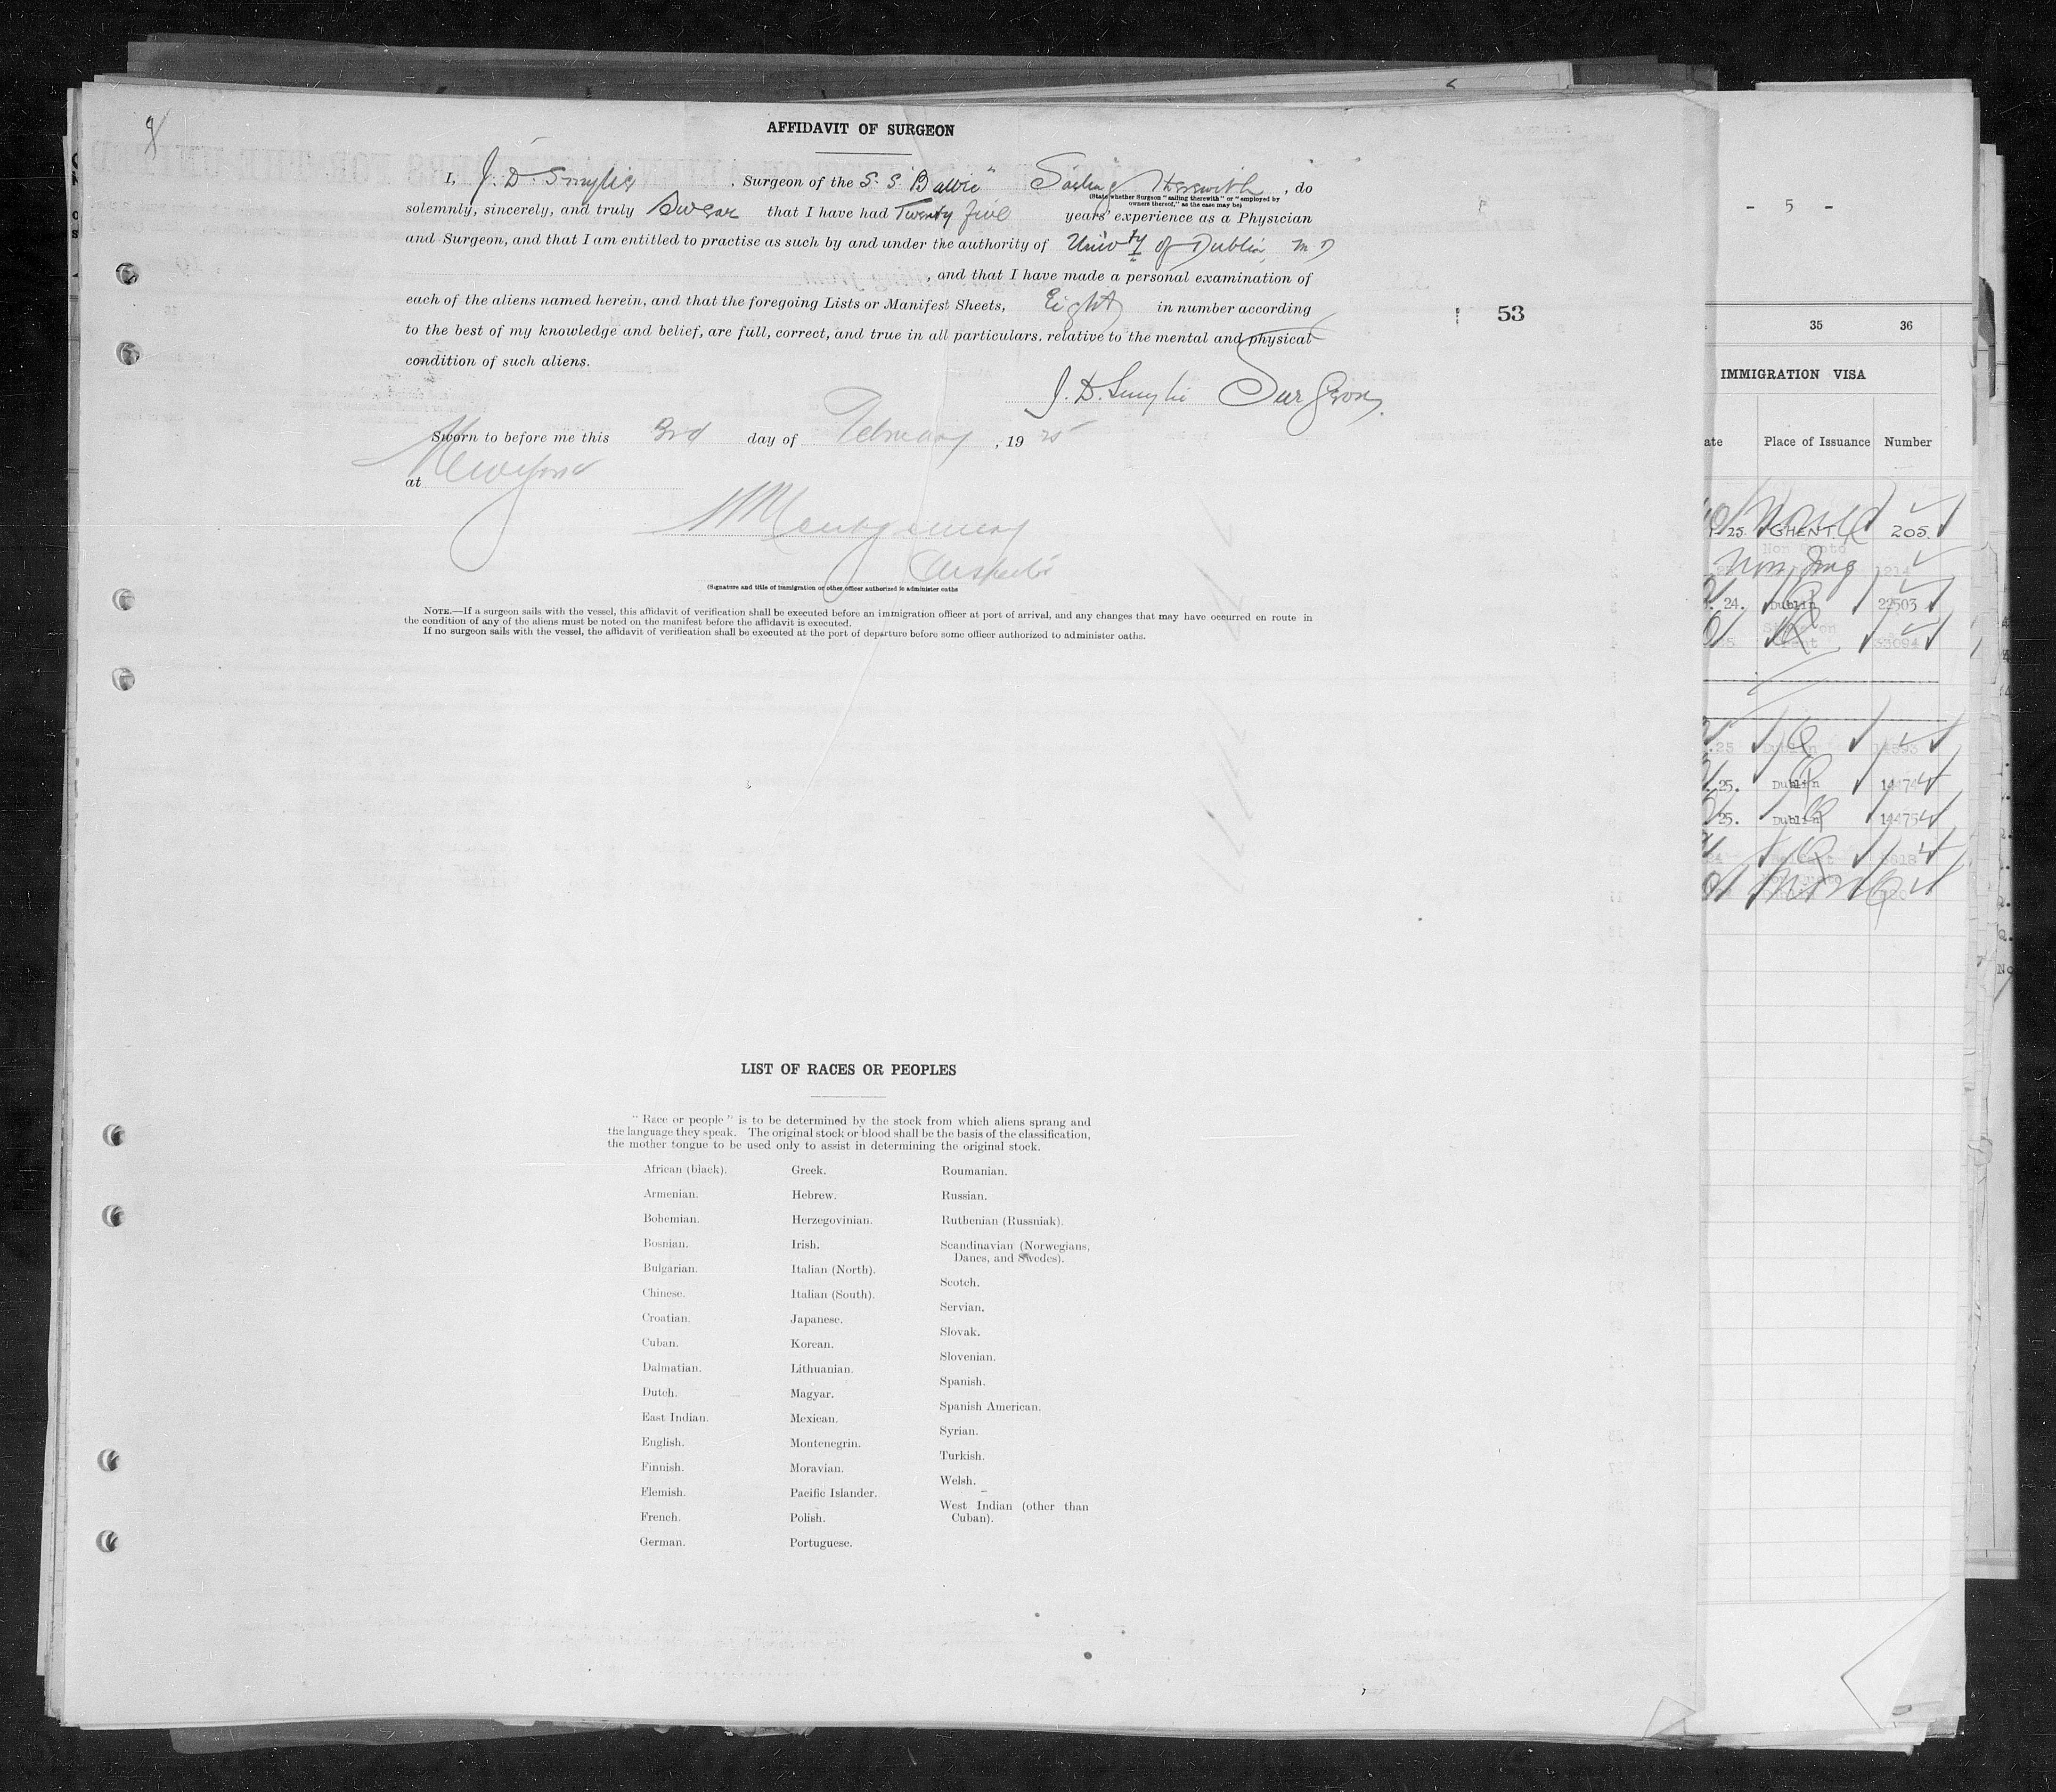 AFFIDAVIT OF SURGEON
I, J. D. Smylie, Surgeon of the S. S. "Baltic" Sailing therewith, do
(State whether Surgeon "sailing therewith" or "employed by
owners thereof," as the case may be)
solemnly, sincerely, and truly Swear that I have had Twenty five years' experience as a Physician
and Surgeon, and that I am entitled to practise as such by and under the authority of Univty of Dublin, M D
, and that I have made a personal examination of
each of the aliens named herein, and that the foregoing Lists or Manifest Sheets, Eight in number according
to the best of my knowledge and belief, are full, correct, and true in all particulars, relative to the mental and physical
condition of such aliens.
J. D. Smylie Surgeon.
Sworn to before me this 3rd day of February, 19 25
at New York
Montgomery
Inspector
(Signature and title of immigration or other officer authorized to administer oaths
NOTE.—If a surgeon sails with the vessel, this affidavit of verification shall be executed before an immigration officer at port of arrival, and any changes that may have occurred en route in
the condition of any of the aliens must be noted on the manifest before the affidavit is executed.
If no surgeon sails with the vessel, the affidavit of verification shall be executed at the port of departure before some officer authorized to administer oaths.
53
LIST OF RACES OR PEOPLES
"Race or people" is to be determined by the stock from which aliens sprang and
the language they speak. The original stock or blood shall be the basis of the classification,
the mother tongue to be used only to assist in determining the original stock.
African (black).
Armenian.
Bohemian.
Bosnian.
Bulgarian.
Chinese.
Croatian.
Cuban.
Dalmatian.
Dutch.
East Indian.
English.
Finnish.
Flemish.
French.
German.
Greek.
Hebrew.
Herzegovinian.
Irish.
Italian (North).
Italian (South).
Japanese.
Korean.
Lithuanian.
Magyar.
Mexican.
Montenegrin.
Moravian.
Pacific Islander.
Polish.
Portuguese.
Roumanian.
Russian.
Ruthenian (Russniak).
Scandinavian (Norwegians,
Danes, and Swedes).
Scotch.
Servian.
Slovak.
Slovenian.
Spanish.
Spanish American.
Syrian.
Turkish.
Welsh.
West Indian (other than
Cuban).
- 5 -
35 36
IMMIGRATION VISA
ate Place of Issuance Number
25 GHENT. 205.
Non Quota
24. Dublin 22503
25 Dublin
25. Dublin 14474
25. Dublin 14475
Belfast